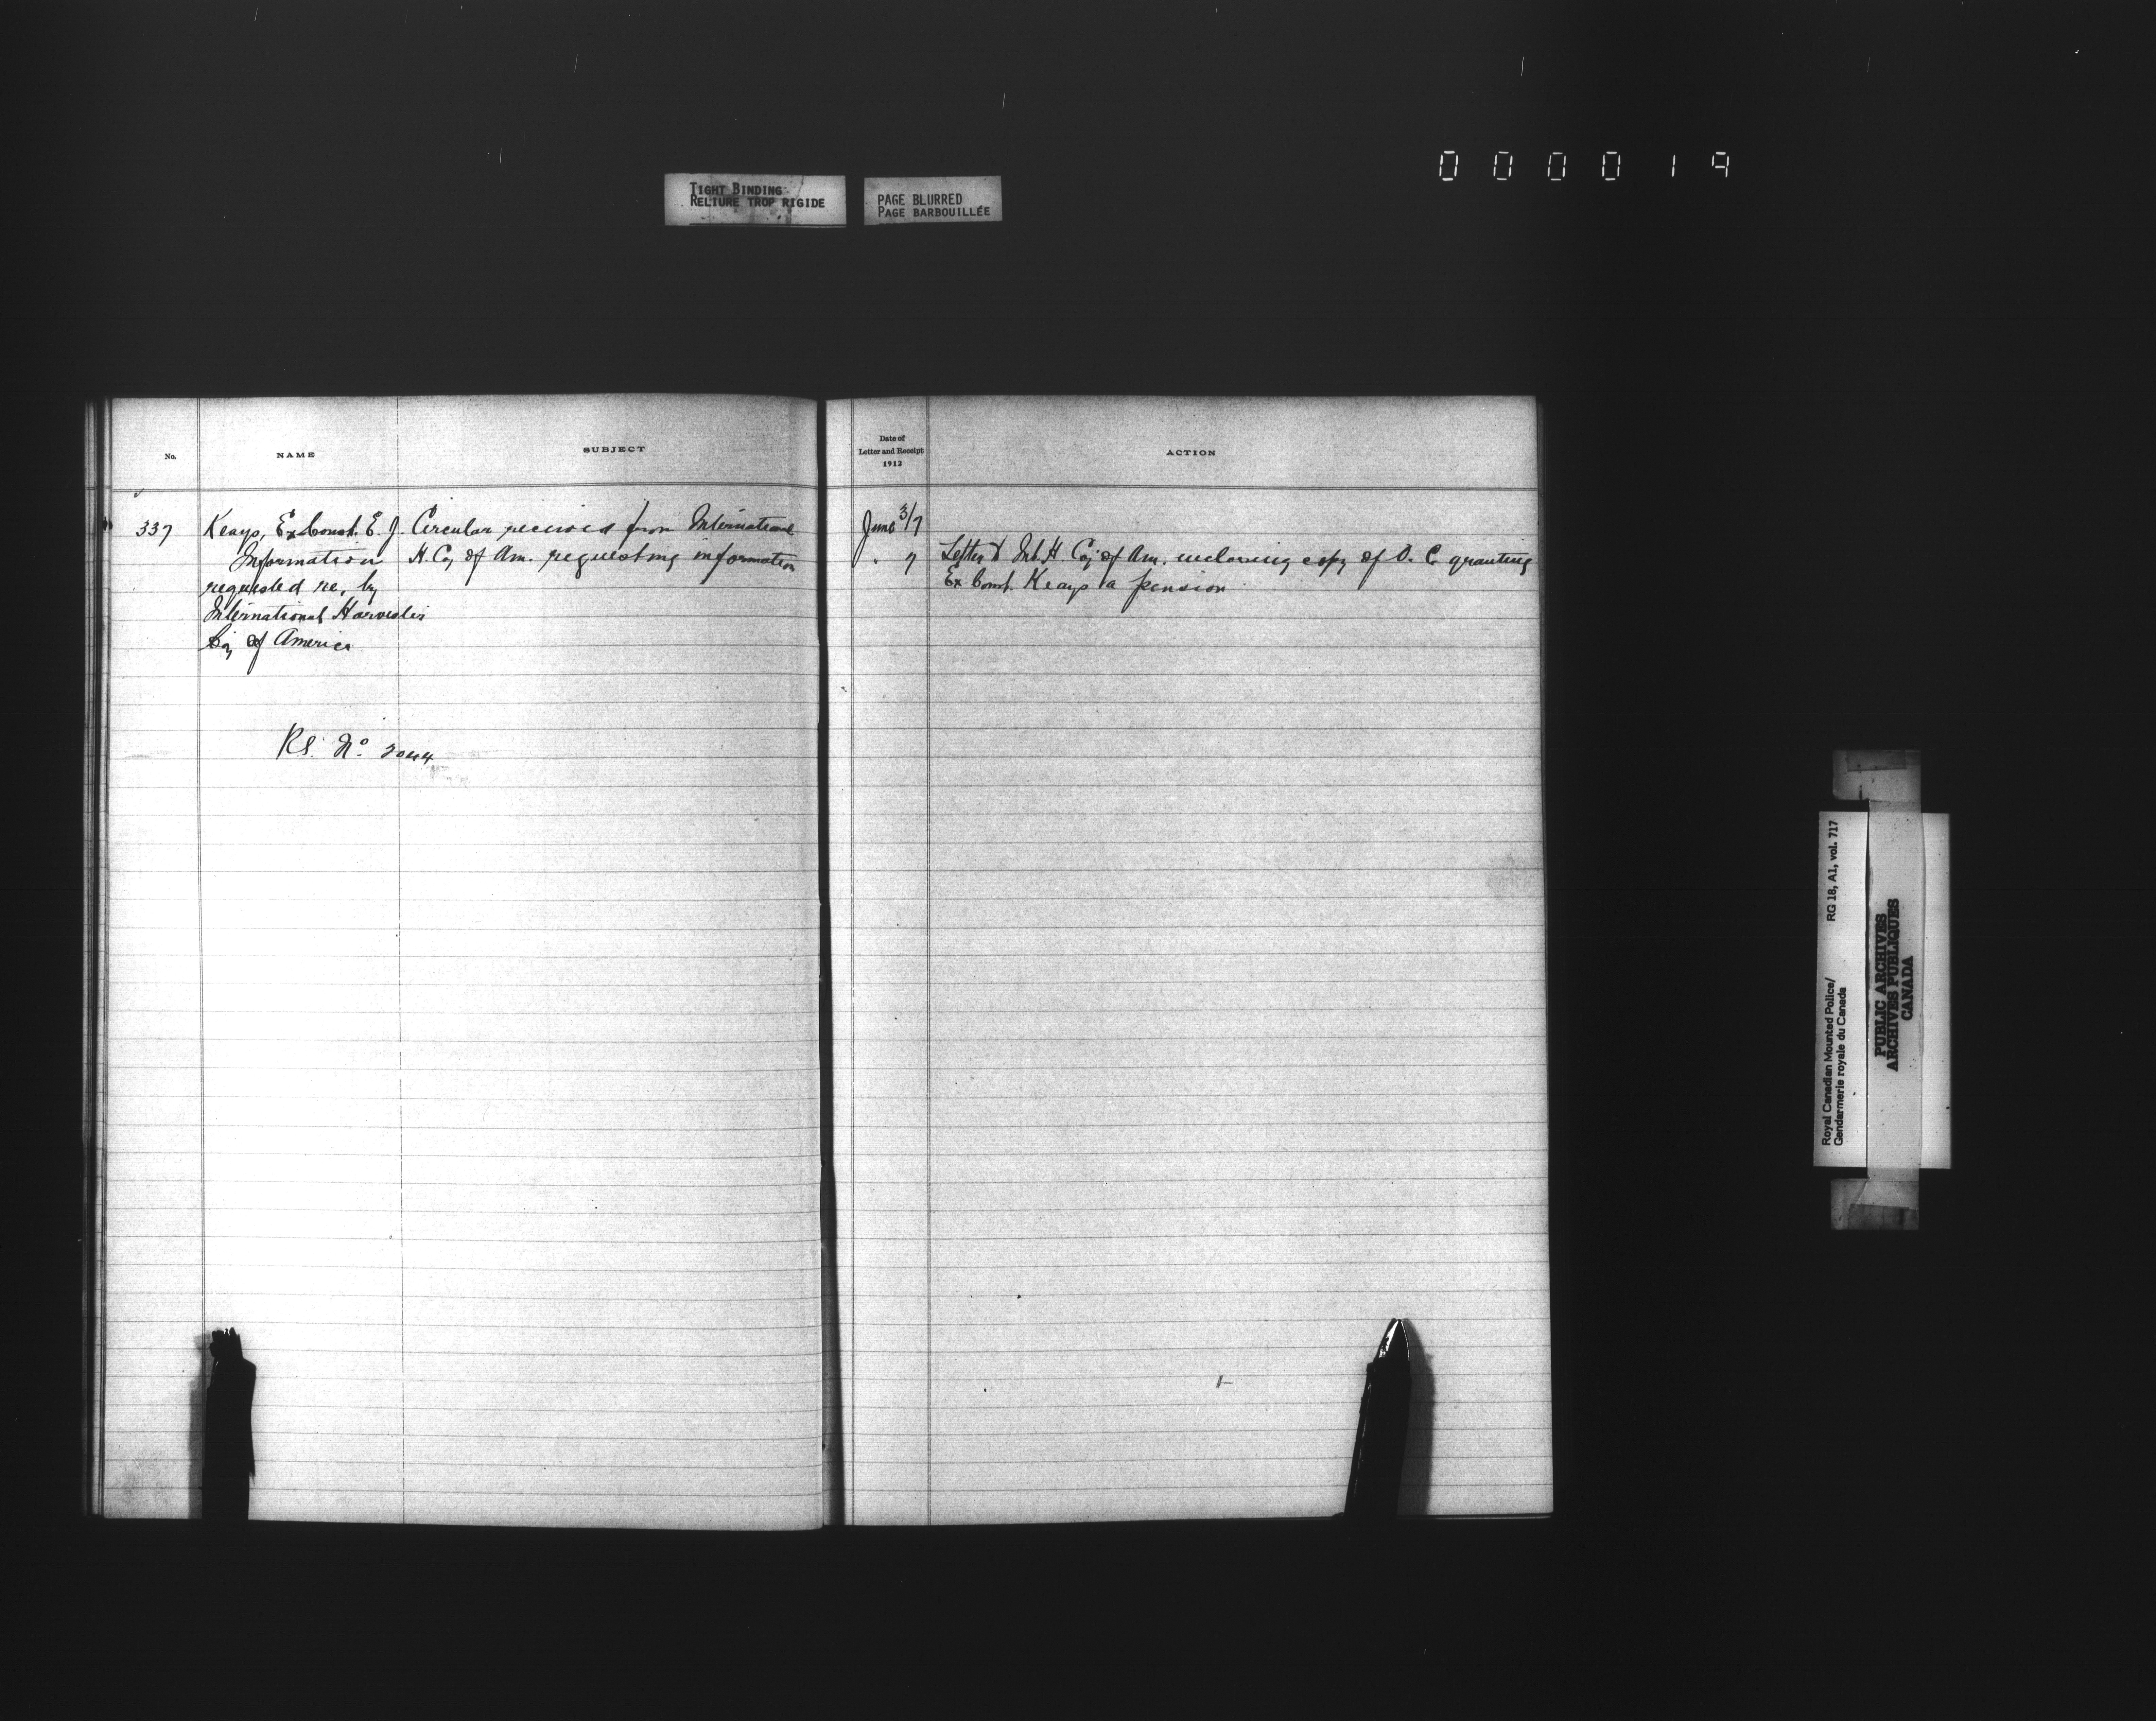 0 0 0 0 1 9
TIGHT BINDING
RELIURE TROP RIGIDE
PAGE BLURRED
PAGE BARBOUILLÉE
No.
NAME
SUBJECT
337
Keays, Ex Const. E. J.
Information
requested re, by
International Harvester
Coy of America
Circular received from International
H. Coy of Am. requesting information
RS. No. 2044
Date of
Letter and Receipt
1912
ACTION
June 3/7
" 7
Letter to Int. H Coy of Am. inclosing copy of O. C. granting
Ex Const. Keays a pension
Royal Canadian Mounted Police/
Gendarmerie royale du Canada
RG 18, A1, vol. 717
PUBLIC ARCHIVES
ARCHIVES PUBLIQUES
CANADA